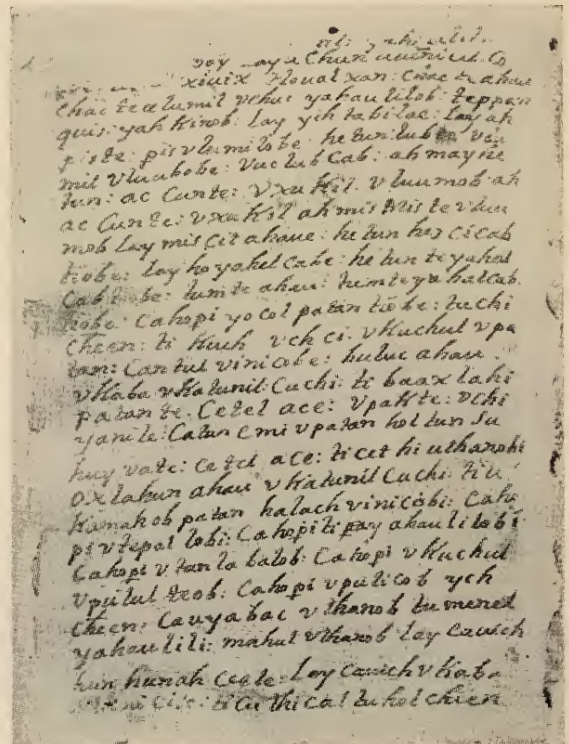 voy
xiuix
Chac te
quis: yah kinob: lay yih tabilac: lay ah
piste: pis vluumilobe: he tun lubte
mil vluubobe: vuc lub Cab: ah may he
tun: ac Cunte: vxukil. vluumob ah
ac Cunte: vxukil ah mis Miste vluu
mob lay mis Cit ahaue: he tun hes Cicab
tiobe: lay ho yahel Cabe: he tun te yahal
Cab tiobe: tumte ahau: tumte yahalcab.
tiobe Cahopi yocol patan tiobe: tuchi
cheen: ti kuch vchci. vkuchul vpa
tan: Cantul vinicobe: buluc ahau.
vkaba vkatunil: Cuchi: ti baax lahi
patan te. Cetel ace: vpakte: vchi
yanile: Catun emi vpatan holtun Su
huy vate: Cetel ace: ti cet hi uthanobi
Oxlahun ahau vkatunil Cuchi: tiu
kamahob patan halach vinicobi: Caho
pi vtepal lobi: Cahopi tipay ahaulilobi
Cahopi vtan la balob: Cahopi vkuchul
vpulul teob: Cahopi vpulicob ych
cheen: Cauyabac vthanob tumenel
yahaulili: mahul vthanob lay Cauich
hun hunah Ceete: lay cauich vkaba
ti Cu thical tu hol cheen